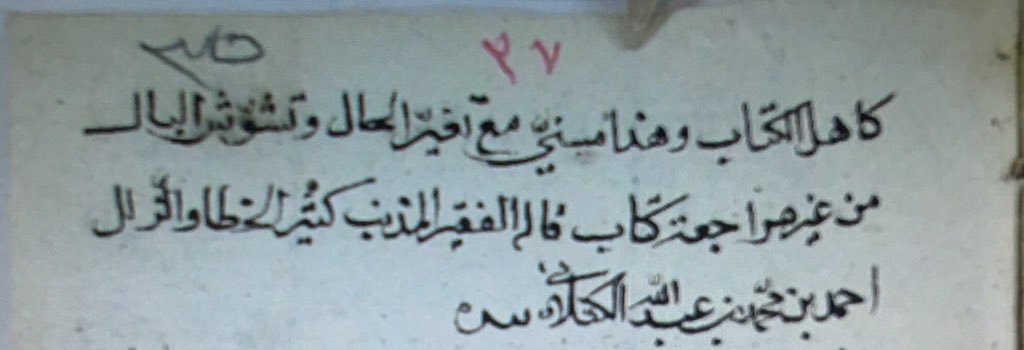 ٣٧
كاهل الكتاب وهذا مسنيّ مع تغيّر الحال وتشوّش البال
من غير مراجعة كتاب قاله الفقير المذنب كثير الخطا والزلل
احمد بن محمد بن عبد الله الكتلاني